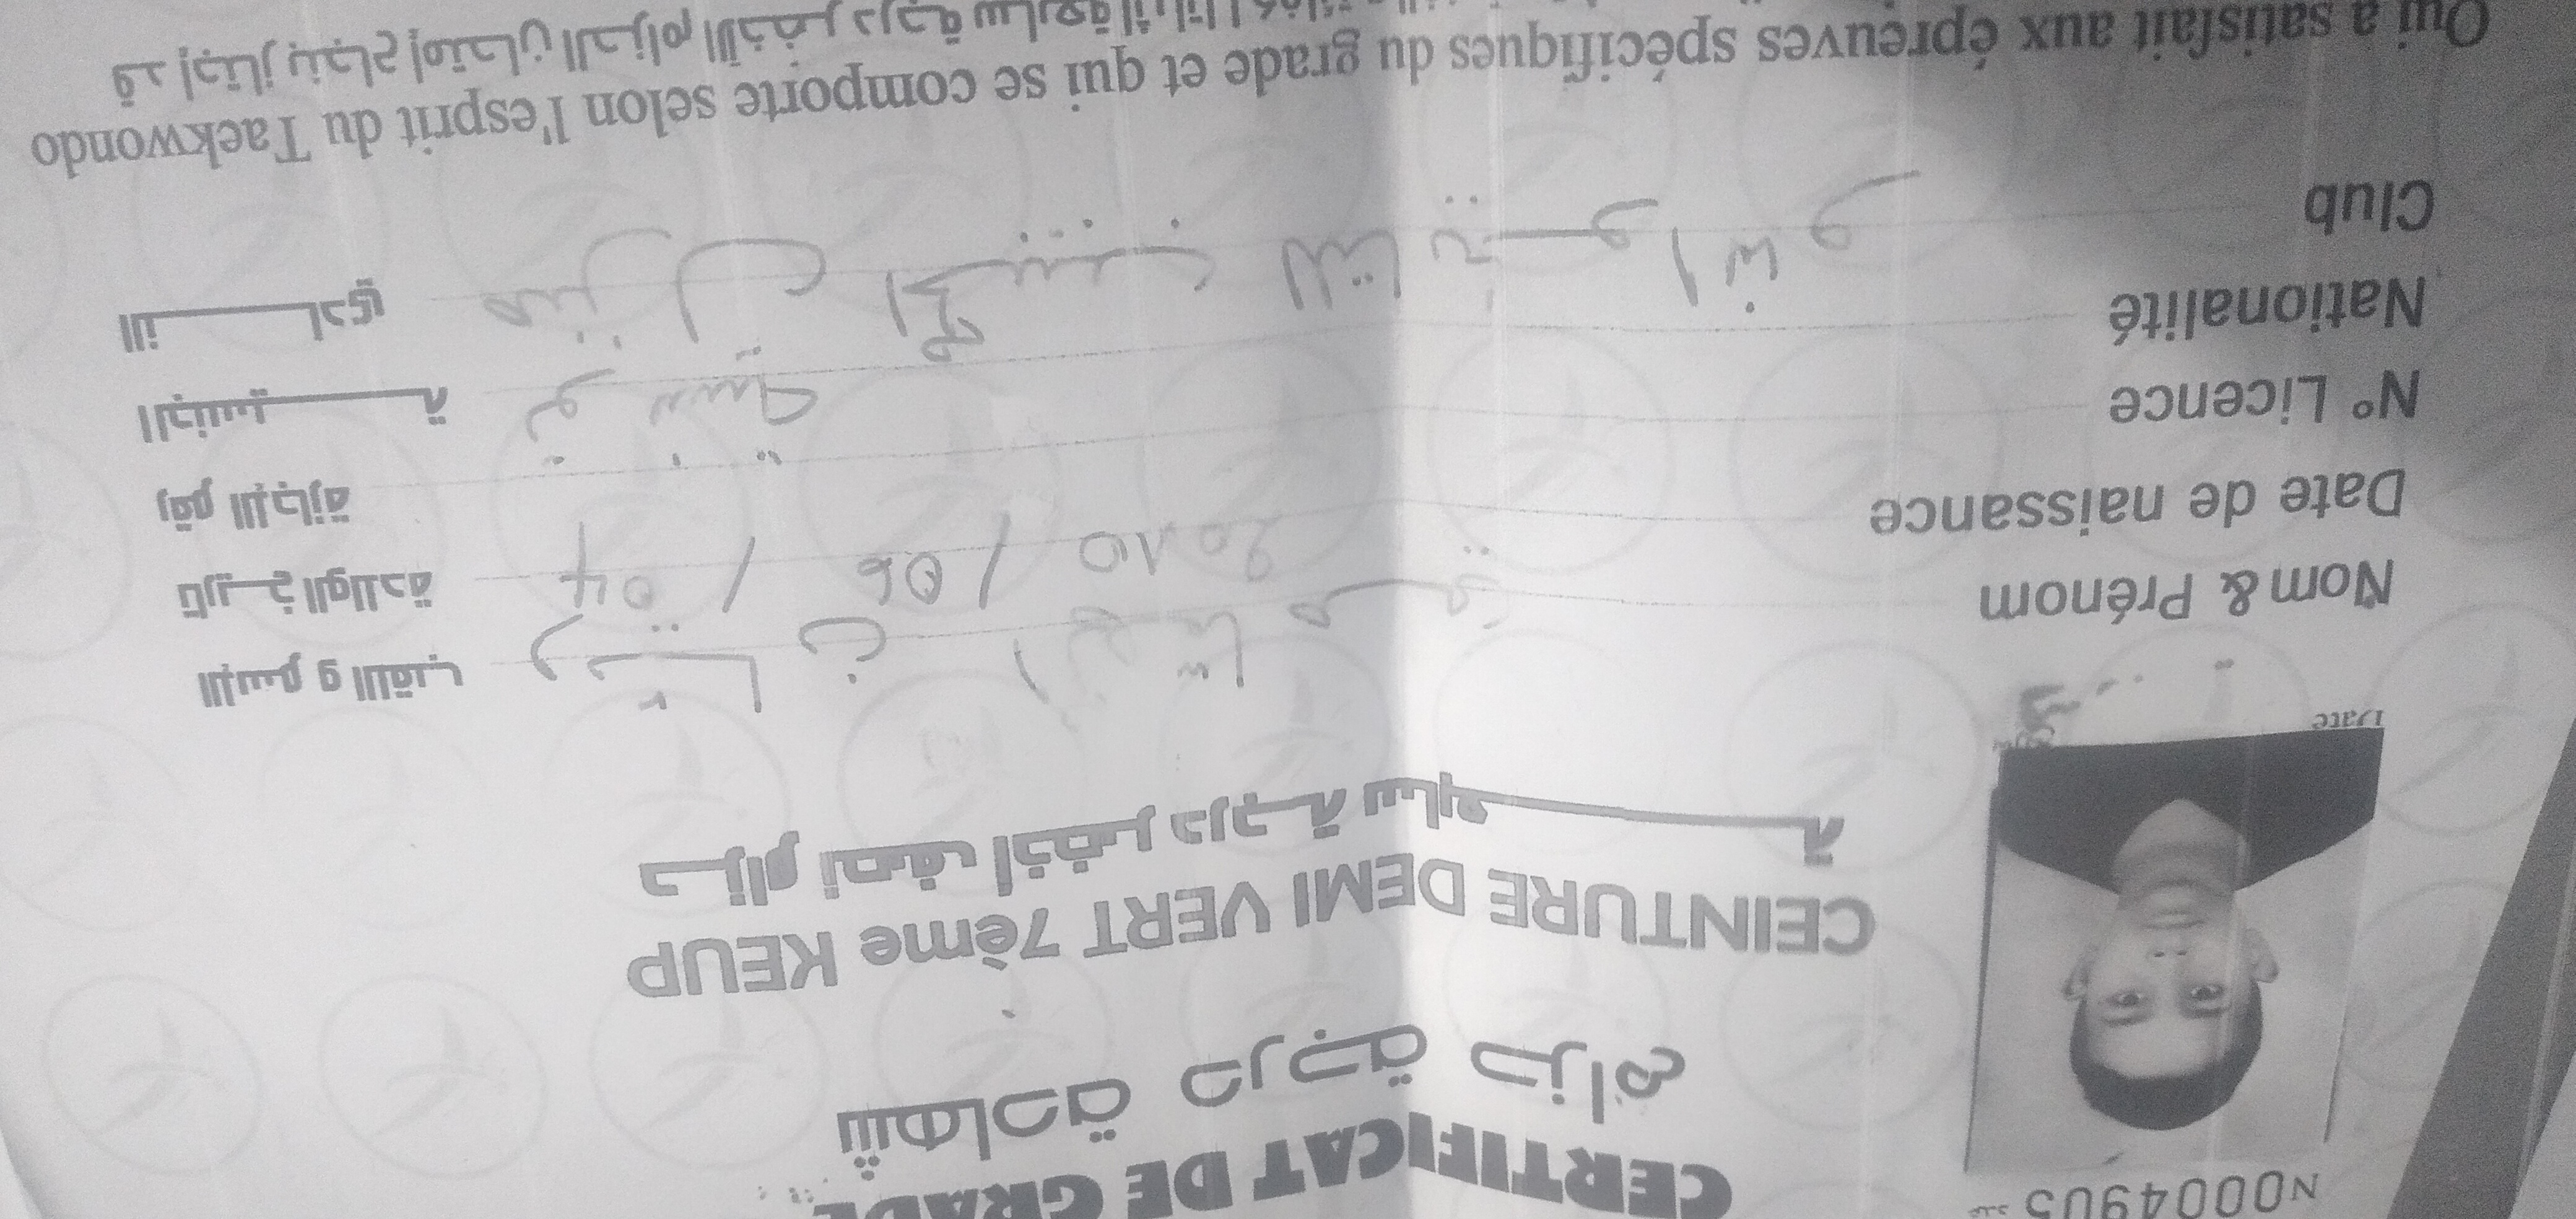 N0004905
CERTIFICAT DE GRADE
شهادة درجة حزام
CEINTURE DEMI VERT 7ème KEUP
حزام نصف أخضر درجة سابعة
Date
Nom & Prénom
الإسم و اللقب
Date de naissance 2010 / 06 / 04 تاريخ الولادة
N° Licence رقم الإجازة
Nationalité تونسية الجنسية
Club النادي
Qui a satisfait aux épreuves spécifiques du grade et qui se comporte selon l'esprit du Taekwondo
قد إجتاز بنجاح إمتحان الحزام الأخضر درجة سابعة